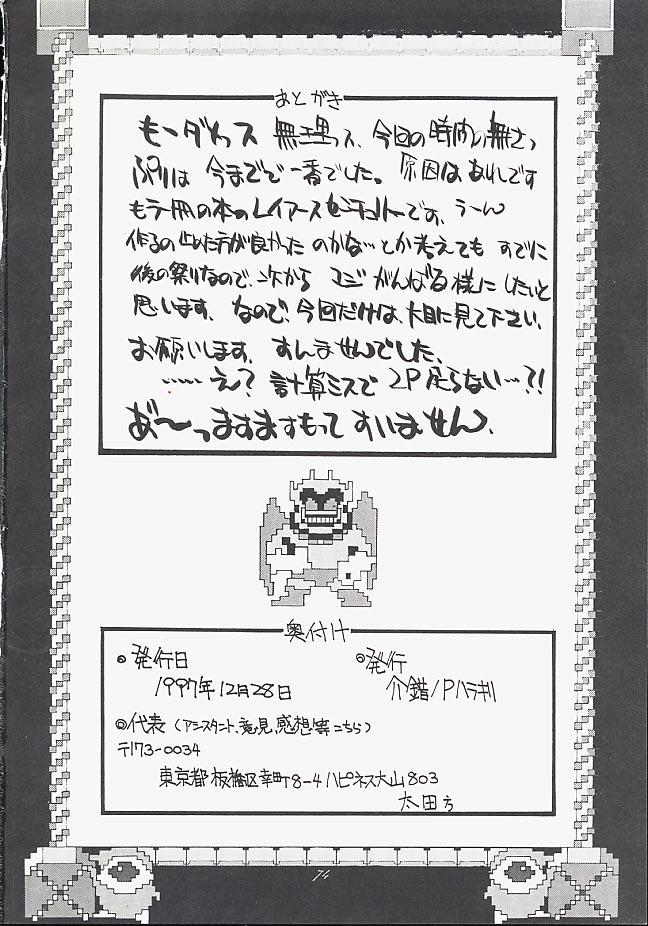 あとがき
もーダメっス 無理っス、今回の時間の無さっ
ぷりは 今までで一番でした。原因はあれです
もう一冊の本のレイアース です、うーん
作るの止めた方が良かった のかな…とか考えても すでに
後の祭りなので、次から マジ がんばる様に したいと
思います、なので、今回だけは、大目に見て下さい、
お願いします、すんませんでした、
……え？ 計算ミスで 2P足らない…?!
あ゛〜っますますもって すいません、
奥付け
◎発行日
1997年12月28日
◎発行
介錯/Pハラキリ
◎代表 (アシスタント、意見、感想等こちら)
〒173-0034
東京都板橋区幸町8-4ハピネス大山803
太田方
74